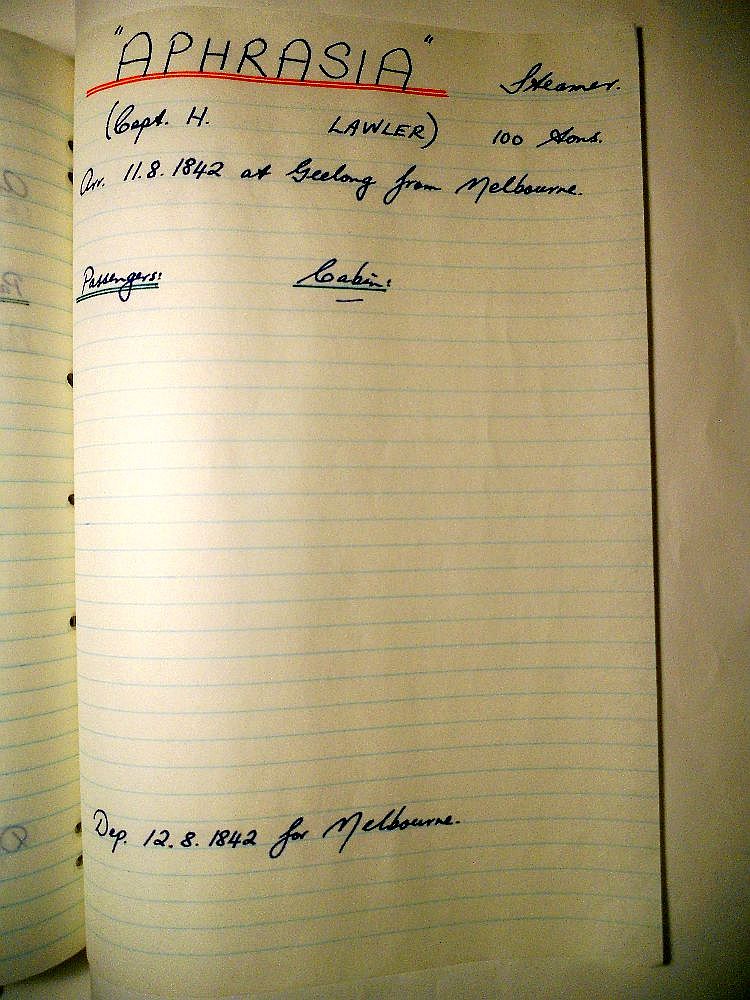 "APHRASIA" Steamer.
(Capt. H. LAWLER) 100 tons.
Arr. 11.8.1842 at Geelong from Melbourne.
Passengers: Cabin:
—
Dep. 12.8.1842 for Melbourne.